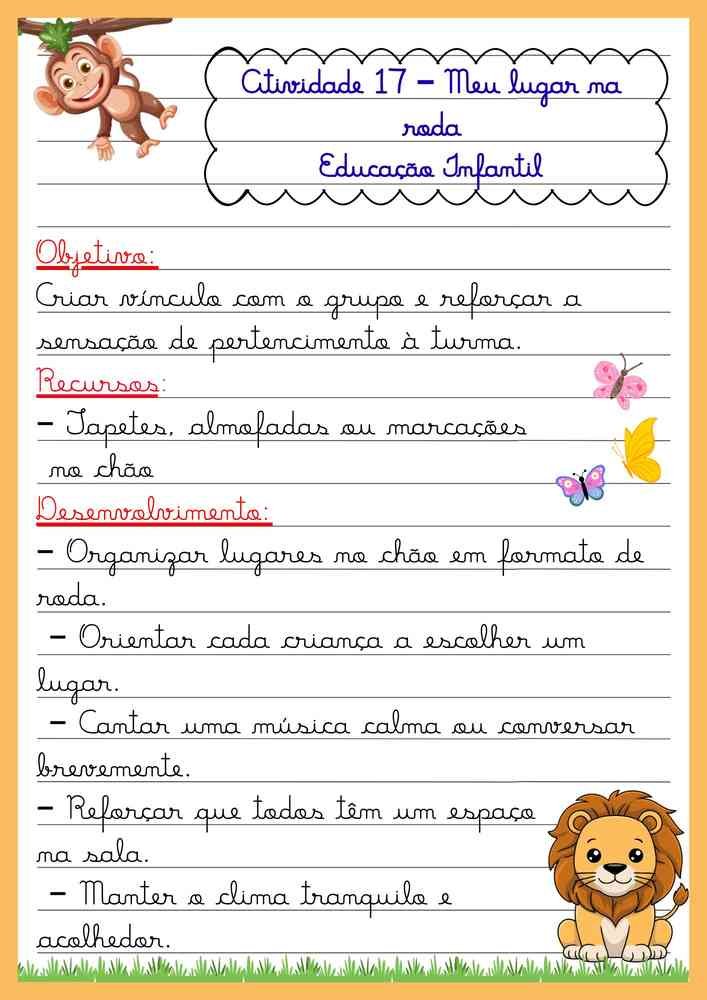 Atividade 17 - Meu lugar na
roda
Educação Infantil
Objetivo:
Criar vínculo com o grupo e reforçar a
sensação de pertencimento à turma.
Recursos:
- Tapetes, almofadas ou marcações
no chão
Desenvolvimento:
- Organizar lugares no chão em formato de
roda.
- Orientar cada criança a escolher um
lugar.
- Cantar uma música calma ou conversar
brevemente.
- Reforçar que todos têm um espaço
na sala.
- Manter o clima tranquilo e
acolhedor.